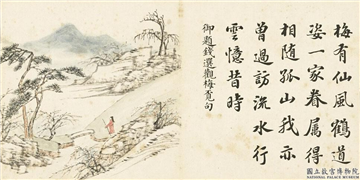 梅有仙風鶴道
姿一家眷属得
相随孤山我亦
曾過訪流水行
雲憶昔時
御題錢選觀梅覓句
國立故宮博物院
NATIONAL PALACE MUSEUM